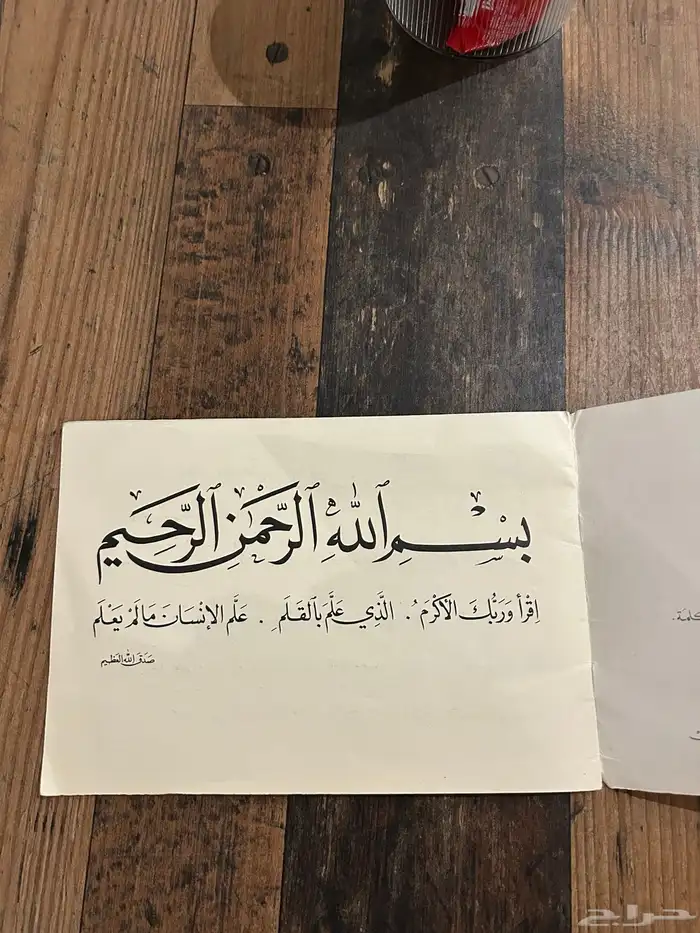 بِسْمِ اللهِ الرَّحْمٰنِ الرَّحِيمِ
اِقْرَأْ وَرَبُّكَ الأَكْرَمُ . الَّذِي عَلَّمَ بِالقَلَمِ . عَلَّمَ الإِنْسَانَ مَا لَمْ يَعْلَم
صَدَقَ اللهُ العَظِيم
كلمة.
حراج